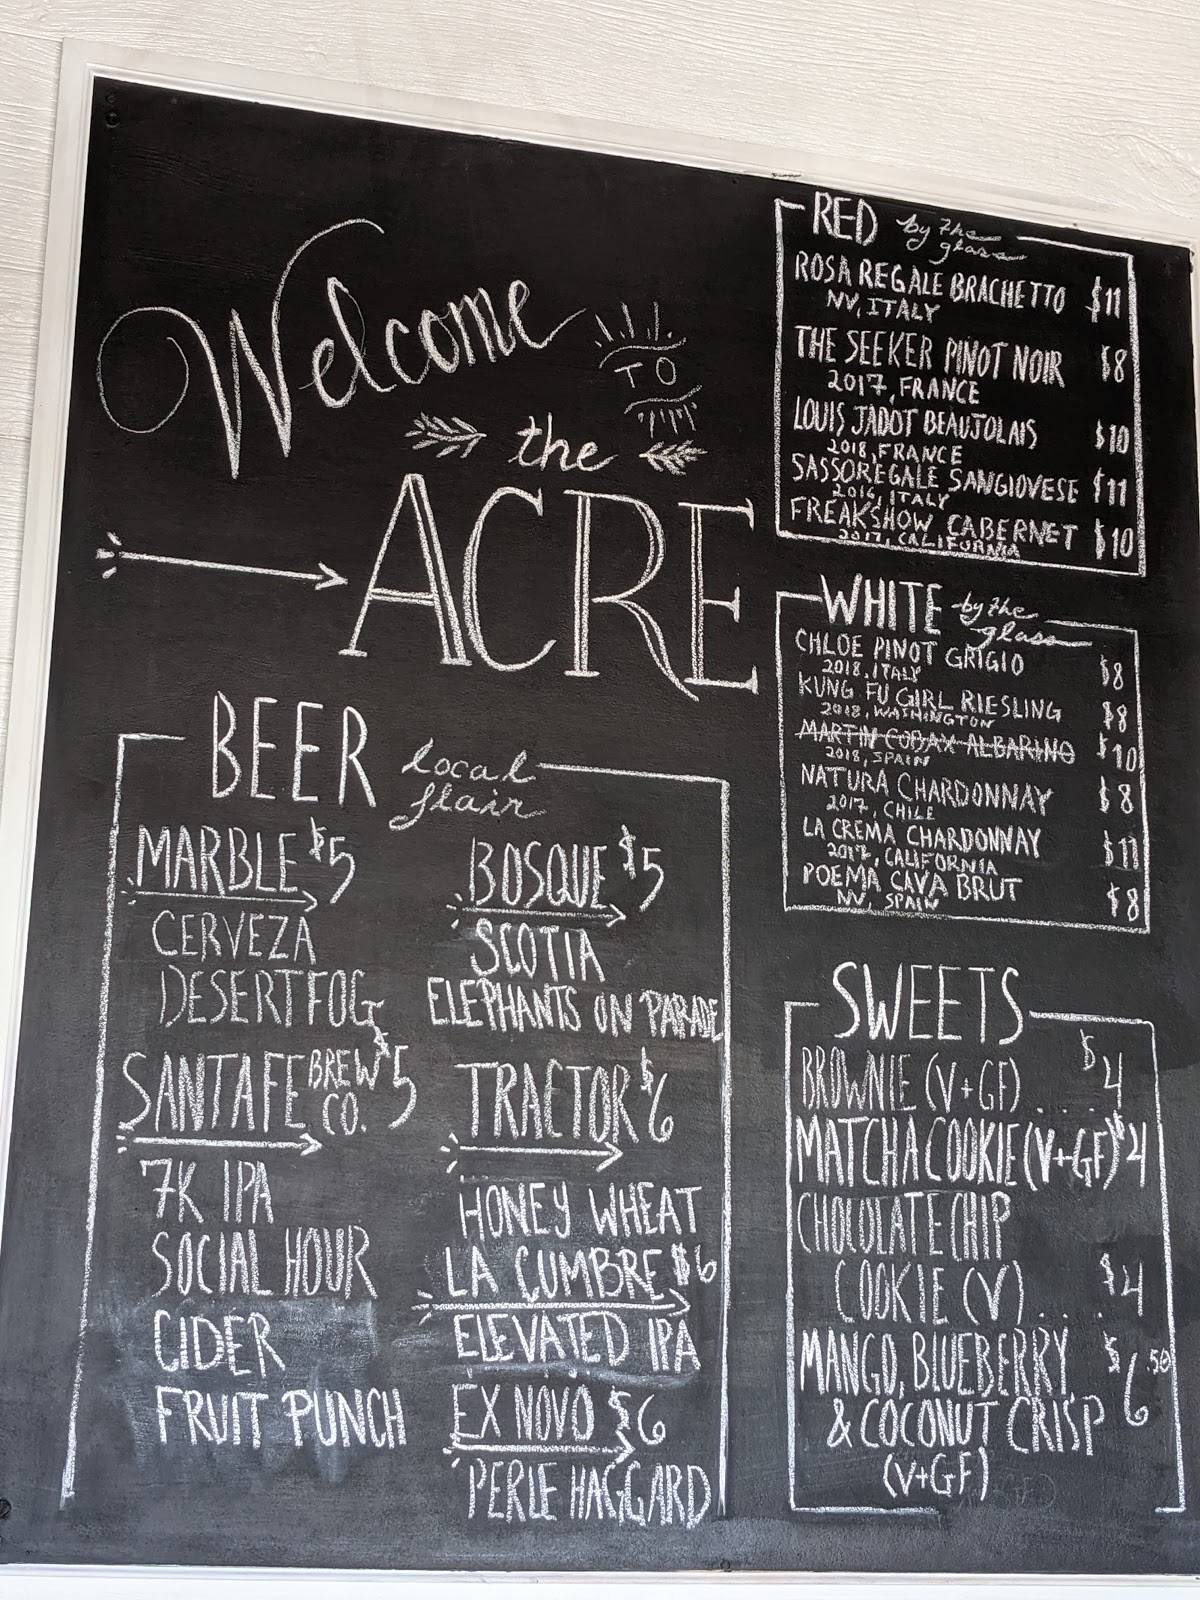 Welcome
TO
the
ACRE
BEER local flair
MARBLE $5
CERVEZA
DESERT FOG
SANTA FE BREW CO. $5
7K IPA
SOCIAL HOUR
CIDER
FRUIT PUNCH
BOSQUE $5
SCOTIA
ELEPHANTS ON PARADE
TRACTOR $6
HONEY WHEAT
LA CUMBRE $6
ELEVATED IPA
EX NOVO $6
PERLE HAGGARD
RED by the glass
ROSA REGALE BRACHETTO $11
NV, ITALY
THE SEEKER PINOT NOIR $8
2017, FRANCE
LOUIS JADOT BEAUJOLAIS $10
2018, FRANCE
SASSOREGALE SANGIOVESE $11
2016, ITALY
FREAKSHOW CABERNET $10
2017, CALIFORNIA
WHITE by the glass
CHLOE PINOT GRIGIO $8
2018, ITALY
KUNG FU GIRL RIESLING $8
2018, WASHINGTON
MARTIN CODAX ALBARINO $10
2018, SPAIN
NATURA CHARDONNAY $8
2017, CHILE
LA CREMA CHARDONNAY $11
2017, CALIFORNIA
POEMA CAVA BRUT $8
NV, SPAIN
SWEETS
BROWNIE (V+GF) .... $4
MATCHA COOKIE (V+GF) $4
CHOCOLATE CHIP
COOKIE (V) .... $4
MANGO, BLUEBERRY, $6.50
& COCONUT CRISP
(V+GF)